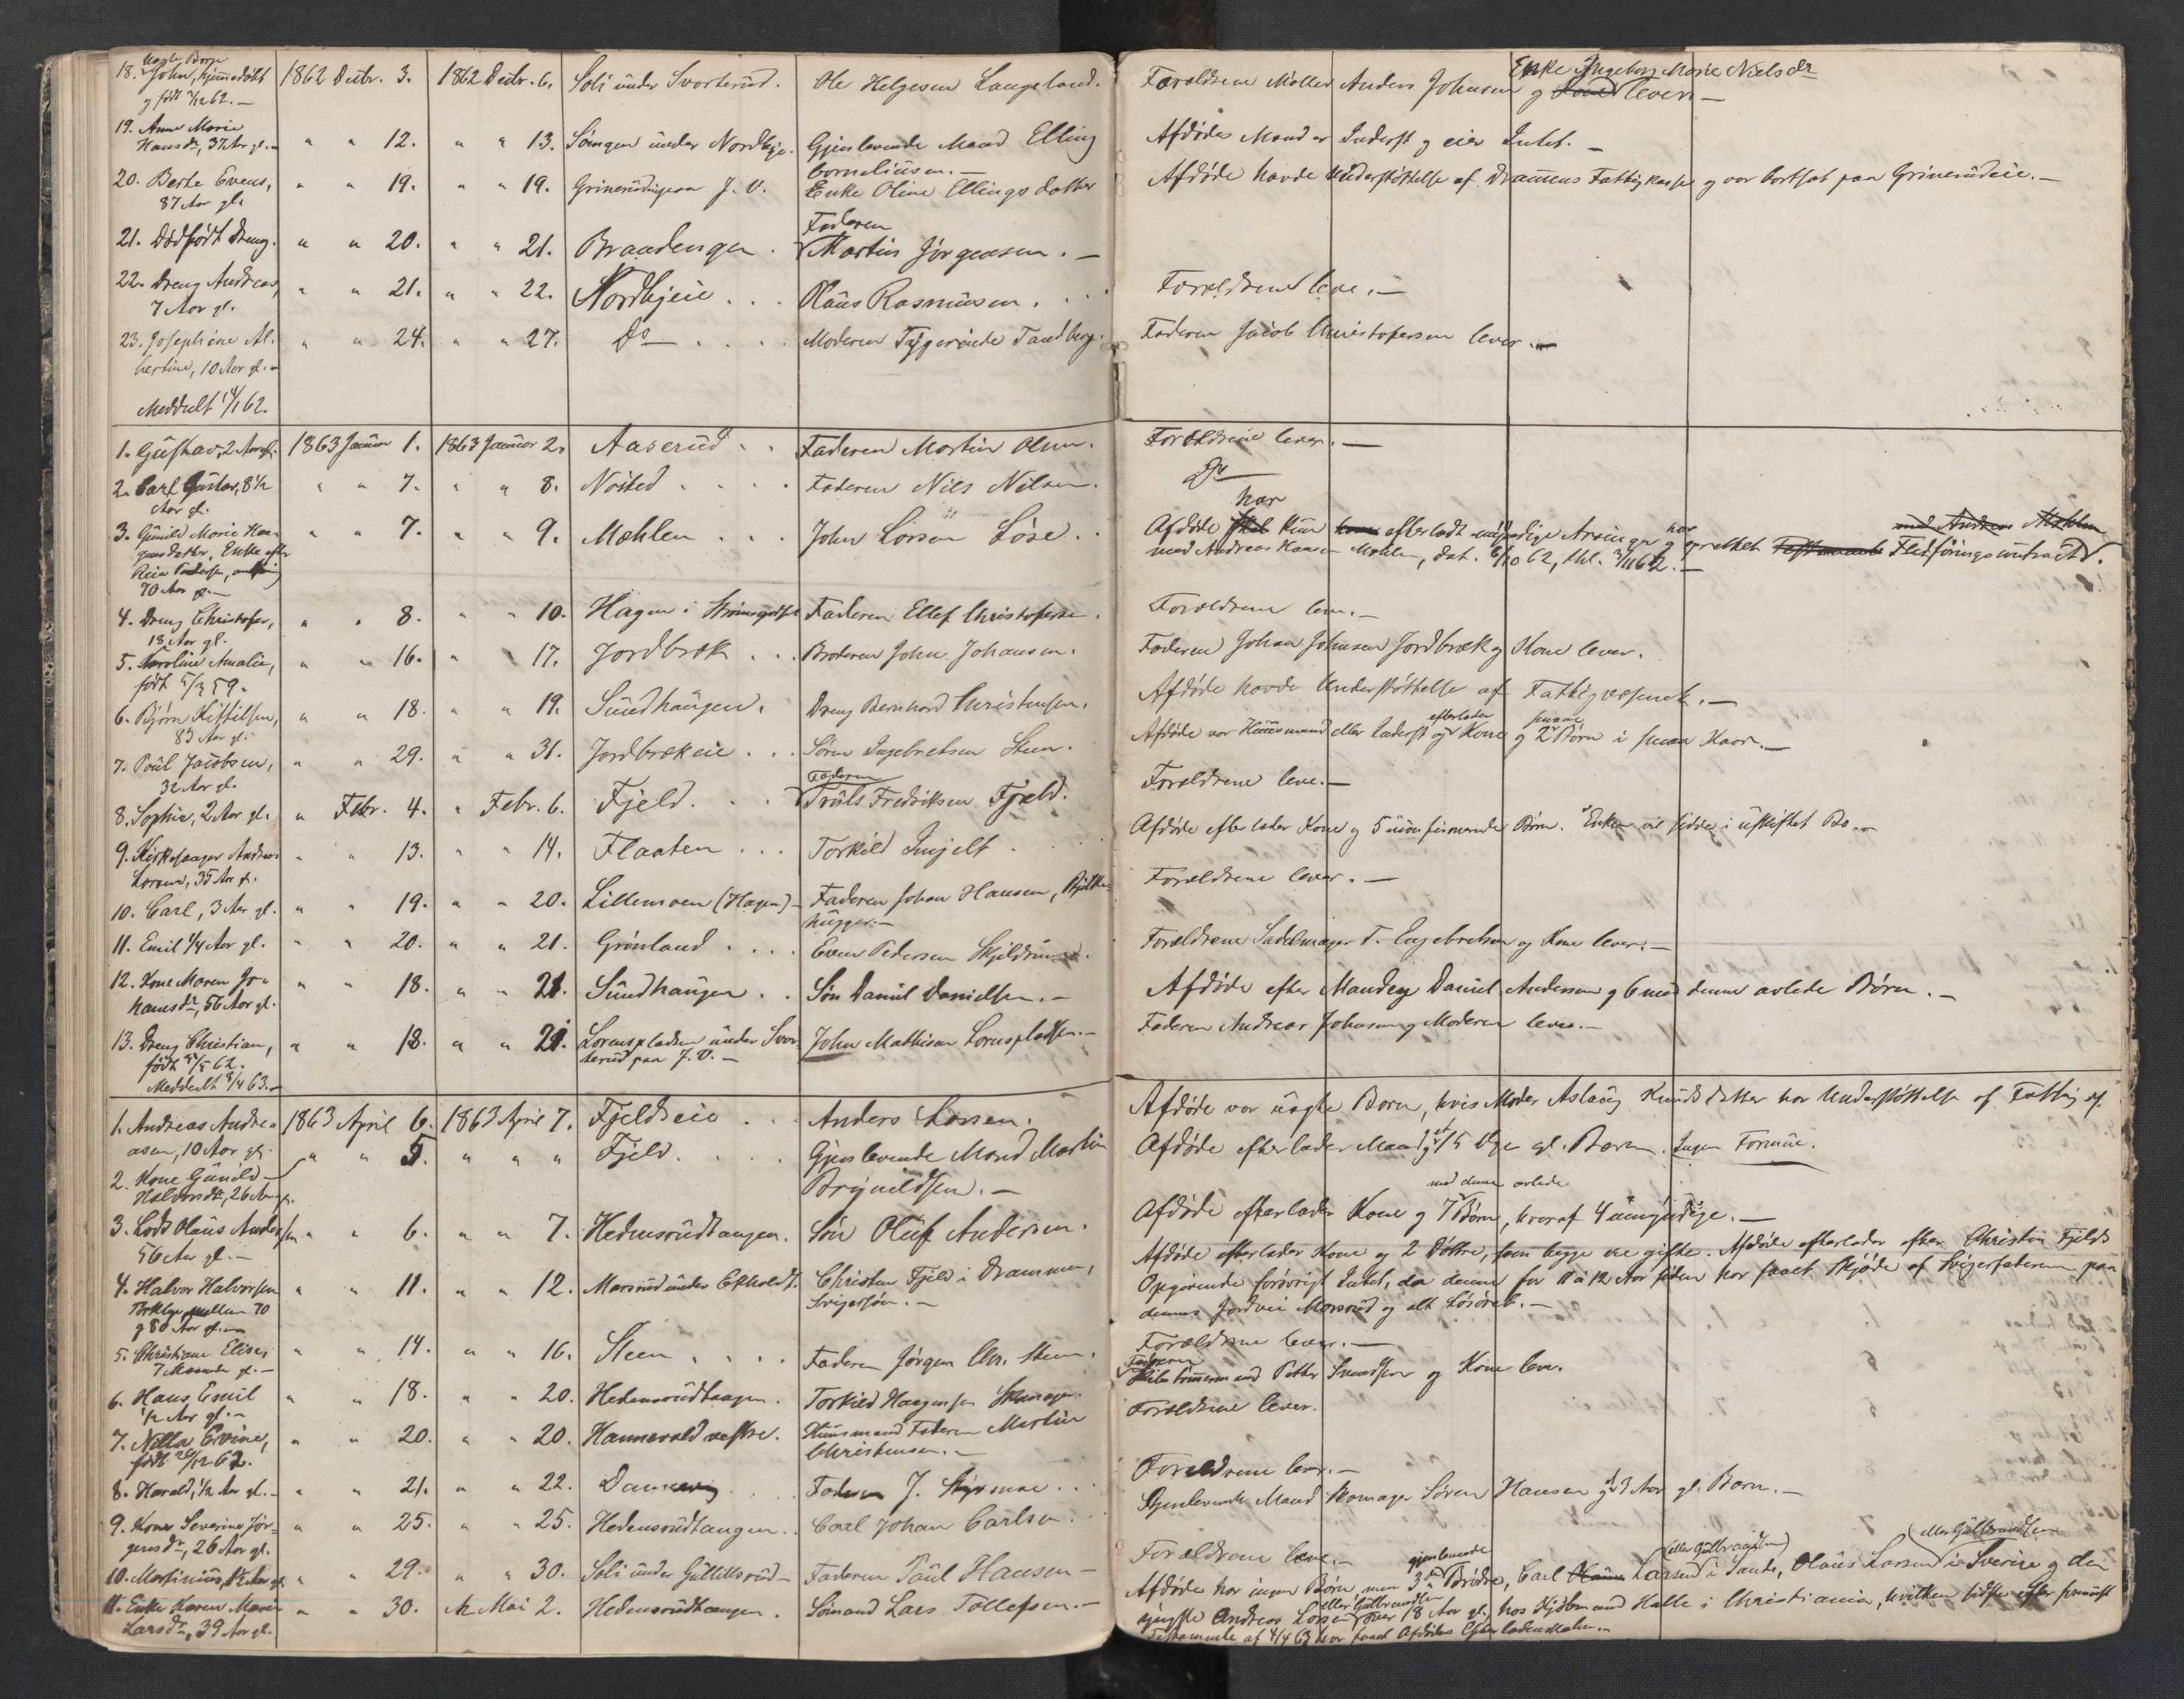 18. uægte Børn John, hjemmedøbt 1862 Decbr. 3. 1862 Decbr. 6. Soli under Svarterud. Ole Helgesen Langeland. Forældrene Møller Anders Johnsen og Enke Ingeborg Marie Nielsdr lever. —
og født
19. Anne Marie
Hansdr, 37 Aar gl. — " " 12. " " 13. under Nordbye. Gjenlevende Mand Elling Afdødes Mand er Inderst og eier Intet. —
Corneliussen. —
20. Berte Evens, " " 19. " " 19. J. V. Enke Oline Ellingsdatter Afdøde havde Understøttelse af Drammens Fattigkasse og var bortsat paa Grinerudeie. —
87 Aar gl.
21. Dødfødt Dreng. " " 20. " " 21. Braadengen . Faderen Martin Jørgensen. —
22. Dreng Andreas, " " 21. " " 22. Nordbyeie . . . Olaus Rasmussen . . . Forældrene leve. —
7 Aar gl.
23. Josephine Al- " " 24. " " 27. Do — . . . . Moderen Tandberg. Faderen Jacob Christofersen lever. —
bertine, 10 Aar gl. —
Meddelt 62.
1. Gustav, 2 Aar gl. 1863 Januar 1. 1863 Januar 2. Aaserud . . Faderen Martin Olsen. Forældrene lever. —
2. Carl Gustav, 8 1/2 " " 7. " " 8. Nøsted . . . . Faderen Nils Nilsen. Do
Aar gl.
3. Gunild Marie Haa- " " 7. " " 9. Mæhlen . . . John Larsen Løse . . Afdøde har efterladt myndige Arvinger og har oprettet Testamente Fledføringscontract
gensdatter, Enke efter med Andreas Hansen Mæhlen, dat. 6/10 62, thl. 3/11 62. —
70 Aar gl. —
4. Dreng Christofer, " " 8. " " 10. Hagen i Strømsgodset Faderen Ellef Christofersen. Forældrene leve. —
18 Aar gl.
5. Karoline Amalie, " " 16. " 17. Jordbræk . . . Broderen John Johansen. Faderen Johan Johnsen Jordbræk og Kone lever.
født 59.
6. Bjørn Kittilsen, " " 18. " " 19. Sundhaugen. Dreng Bernhard Christensen. Afdøde havde Understøttelse af Fattigvæsenet. —
83 Aar gl.
7. Poul Jacobsen, " " 29. " " 31. Jordbrækeie . . . Søren Ingebretsen Steen. Afdøde var Huusmand eller Inderst og efterlader Kone og 2 smaae Børn i smaa Kaar. —
32 Aar gl.
8. Sophie, 2 Aar gl. " Febr. 4. " Febr. 6. Fjeld. . . Faderen Truls Fredriksen Fjeld. Forældrene leve. —
9. Kirkesanger Andreas " " 13. " " 14. Flaaten . . . Torkild . Afdøde efterlader Kone og 5 uconfirmerede Børn. Enken vil sidde i uskiftet Bo. —
Larsen, 35 Aar gl.
10. Carl, 3 Aar gl. " " 19. " " 20. Lillemoen (Hagen) — Faderen Johan Hansen, Bjelke- Forældrene lever. —
hugger. —
11. Emil 1/4 Aar gl. " " 20. " " 21. Grønland . . . . Even Pedersen Forældrene Sadelmager T. Engebretsen og Kone lever. —
12. Kone Maren Jo- " " 18. " " 21. Sundhaugen . . Søn Daniel Danielsen. — Afdøde efter Manden Daniel Andersen og 6 med denne avlede Børn. —
hansdr, 56 Aar gl.
13. Dreng Christian, " " 18. " " 21. Lorenspladsen under Svar- John Mathisen Lorenspladsen. — Faderen Andreas Johnsen og Moderen lever. —
født 62. terud paa J. V. —
Meddeelt 63. —
1. Andreas Andre- 1863 April 6. 1863 April 7. Fjeldseie . . . Anders Larsen. Afdøde var uægte Barn, hvis Moder Aslaug Knudsdatter har Understøttelse af Fattigv.
asen, 10 Aar gl.
2. Kone Gunild " " 5. " " " Fjeld. . . . Gjenlevende Mand Martin Afdøde efterlader Mand og et 15 Uger gl. Barn. Ingen Formue.
Halvorsdr, 26 Aar gl. Bryneldsen. —
3. Lods Olaus Andersen " " 6. " " 7. Hedensrudtangen. Søn Oluf Andersen. Afdøde efterlader Kone og 7 med denne avlede Børn, hvoraf 4 umyndige. —
56 Aar gl. —
4. Halvor Halvorsen " " 11. " " 12. Marsrud under Ekholdt. Christen Fjeld i Drammen, Afdøde efterlader Kone og 2 Døttre, som begge ere gifte. Afdøde efterlader efter Christen Fjelds
mellem 70 Svigersøn. — Opgivende forøvrigt Intet, da denne for 11 à 12 Aar siden har faaet Skjøde af Svigerfaderen paa
og 80 Aar gl. — dennes Jordvei Marsrud og alt Løsøret. —
5. Christiane Elise, " " 14. " " 16. Steen . . . . Faderen Jørgen Chr. Steen. Forældrene lever. —
7 Maaneder gl. —
6. Hans Emil " " 18. " " 20. Hedensrudtangen. Torkild Haagensen Faderen Petter Svendsen og Kone lever.
1/2 Aar gl. —
7. Nilla Ervine, " " 20. " " 20. Hannevold vestre. Huusmand Faderen Martin Forældrene lever.
født 62. Christensen. —
8. Harald, 1/2 Aar gl. — " " 21. " " 22. . . . Faderen J. . . Forældrene lever. —
9. Kone Severine Jør- " " 25. " " 25. Hedensrudtangen. . Carl Johan Carlsen. . Gjenlevende Mand Skomager Søren Hansen og et 3 Aar gl. Barn. —
gensdr, 26 Aar gl.
10. Martinius, Aar gl. " " 29. " " 30. Soli under Gulliksrud — Faderen Paul Hansen — Forældrene leve. —
11. Enke Karen Marie " " 30. " Mai 2. Hedensrudtangen. Sømand Lars Tollefsen. — Afdøde har ingen Børn, men 3 gjenlevende Brødre, Carl Larsen (eller Gulbrandsen) i Sande, Olaus Larsen (eller Gulbrandsen) i Sverige og den
Larsdr, 39 Aar gl. yngste Andreas Larsen eller Gulbrandsen over 18 Aar gl., hos Kjøbmand Halle i Christiania, hvilken sidste efter
Testamente af 4/4 63 har faaet Afdødes Efterladenskaber. —